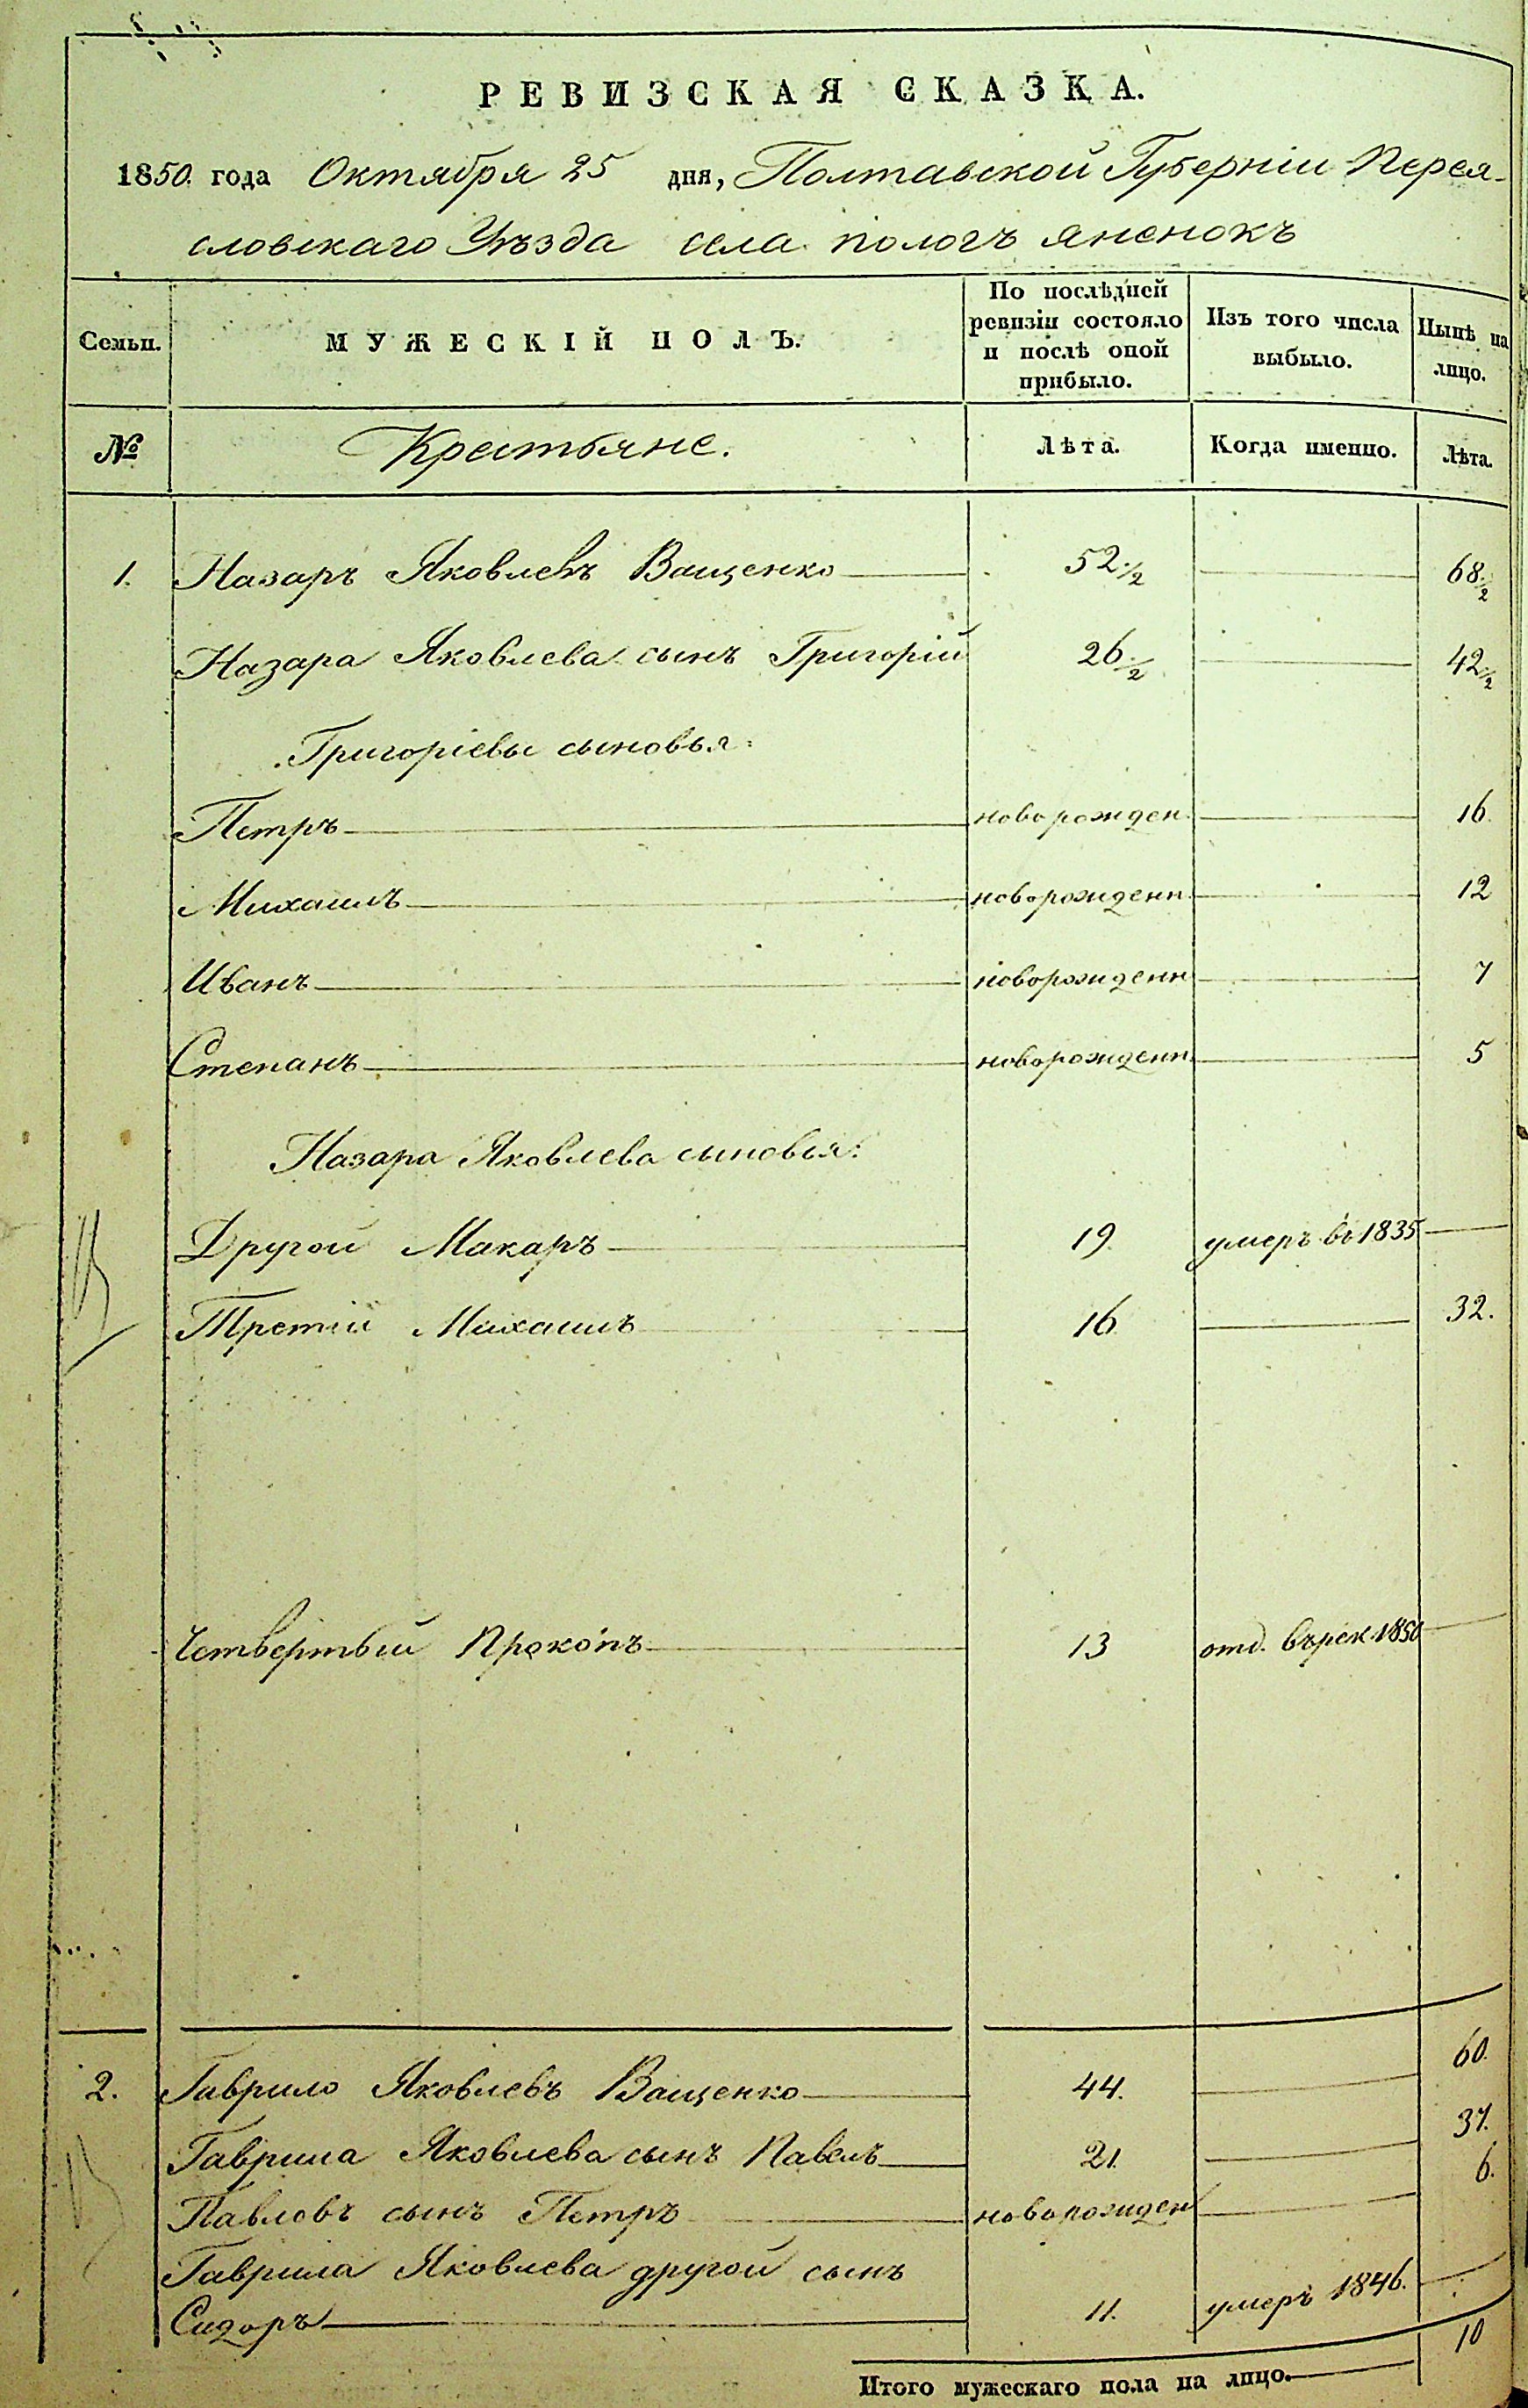 РЕВИЗСКАЯ СКАЗКА.
1850 года Октября 25 дня, Полтавской Губерніи Перея-
словскаго Уѣзда села пологъ яненокъ
Семьи. МУЖЕСКІЙ ПОЛЪ. По послѣдней ревизіи состояло и послѣ оной прибыло. Изъ того числа выбыло. Нынѣ на лицо.
№ Крестьяне. Лѣта. Когда именно. Лѣта.
1. Назаръ Яковлевъ Ващенко 52 1/2 68 1/2
Назара Яковлева сынъ Григорій 26 1/2 42 1/2
Григоріевы сыновья:
Петръ новорожден. 16.
Михаилъ новорожденн. 12
Иванъ новорожденн 7
Степанъ новорожденн. 5
Назара Яковлева сыновья:
Другой Макаръ 19. умеръ въ 1835
Третій Михаилъ 16 32.
Четвертый Прокопъ 13 отд. въ рек. 1850
2. Гаврило Яковлевъ Ващенко 44. 60.
Гаврила Яковлева сынъ Павелъ 21. 37.
Павловъ сынъ Петръ новорожден 6.
Гаврила Яковлева другой сынъ
Сидоръ 11. умеръ 1846.
Итого мужескаго пола на лицо. 10